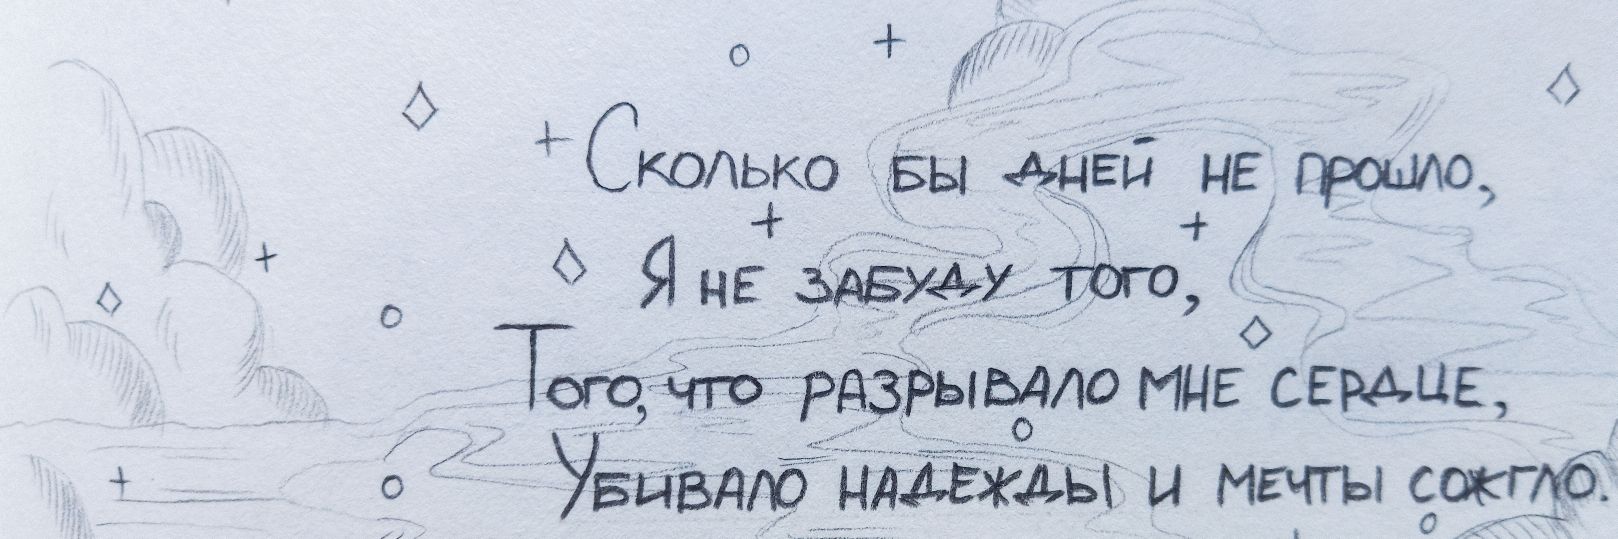 Сколько бы дней не прошло,
Я не забуду того,
Того, что разрывало мне сердце,
Убивало надежды и мечты сожгло.